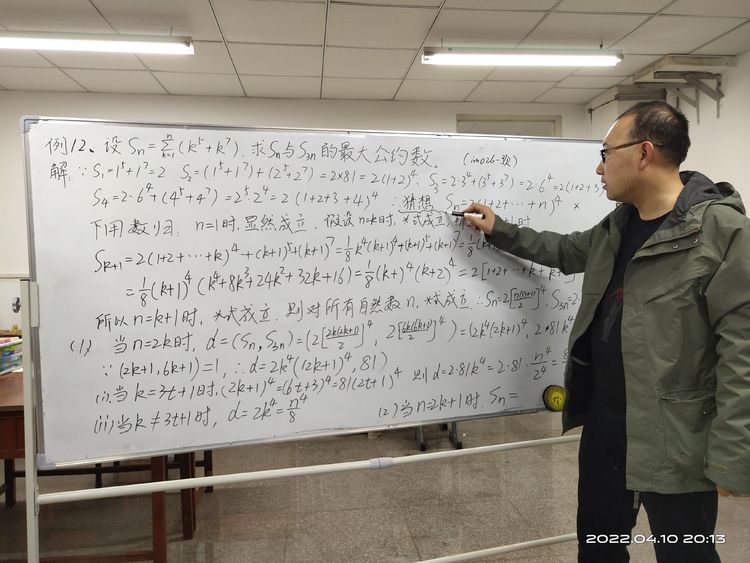 例12、设 Sn = Σ(k=1→n) (k⁵+k⁷). 求 Sn 与 S3n 的最大公约数. (imo26-预)
解: ∵ S₁=1⁵+1⁷=2 S₂=(1⁵+1⁷)+(2⁵+2⁷)=2×81=2(1+2)⁴, S₃=2·3⁴+(3⁵+3⁷)=2·6⁴=2(1+2+3
S₄=2·6⁴+(4⁵+4⁷)=2⁵·2⁴=2(1+2+3+4)⁴ ∴猜想 Sn=2(1+2+⋯+n)⁴ *
下用数归: n=1时,显然成立. 假设 n=k时,*式成立, 1时
Sk+1=2(1+2+⋯+k)⁴+(k+1)⁵+(k+1)⁷=1/8 k⁴(k+1)⁴+(k+1)⁵+(k+1)⁷=1/8(k+
=1/8(k+1)⁴(k⁴+8k³+24k²+32k+16)=1/8(k+1)⁴(k+2)⁴=2[1+2+⋯+k+k+
所以 n=k+1时, *式成立. 则对所有自然数n, *式成立 ∴Sn=2[n(n+1)/2]⁴, S3n=2·
(1) 当 n=2k时, d=(Sn,S3n)=(2[2k(2k+1)/2]⁴, 2[6k(6k+1)/2]⁴)=(2k⁴(2k+1)⁴, 2·81k⁴
∵(2k+1,6k+1)=1, ∴d=2k⁴((2k+1)⁴,81)
(i)当 k=3t+1时,(2k+1)⁴=(6t+3)⁴=81(2t+1)⁴ 则 d=2·81k⁴=2·81·n⁴/2⁴=8
(ii)当 k≠3t+1时, d=2k⁴=n⁴/8 (2)当 n=2k+1时. Sn=
2022.04.10 20:13